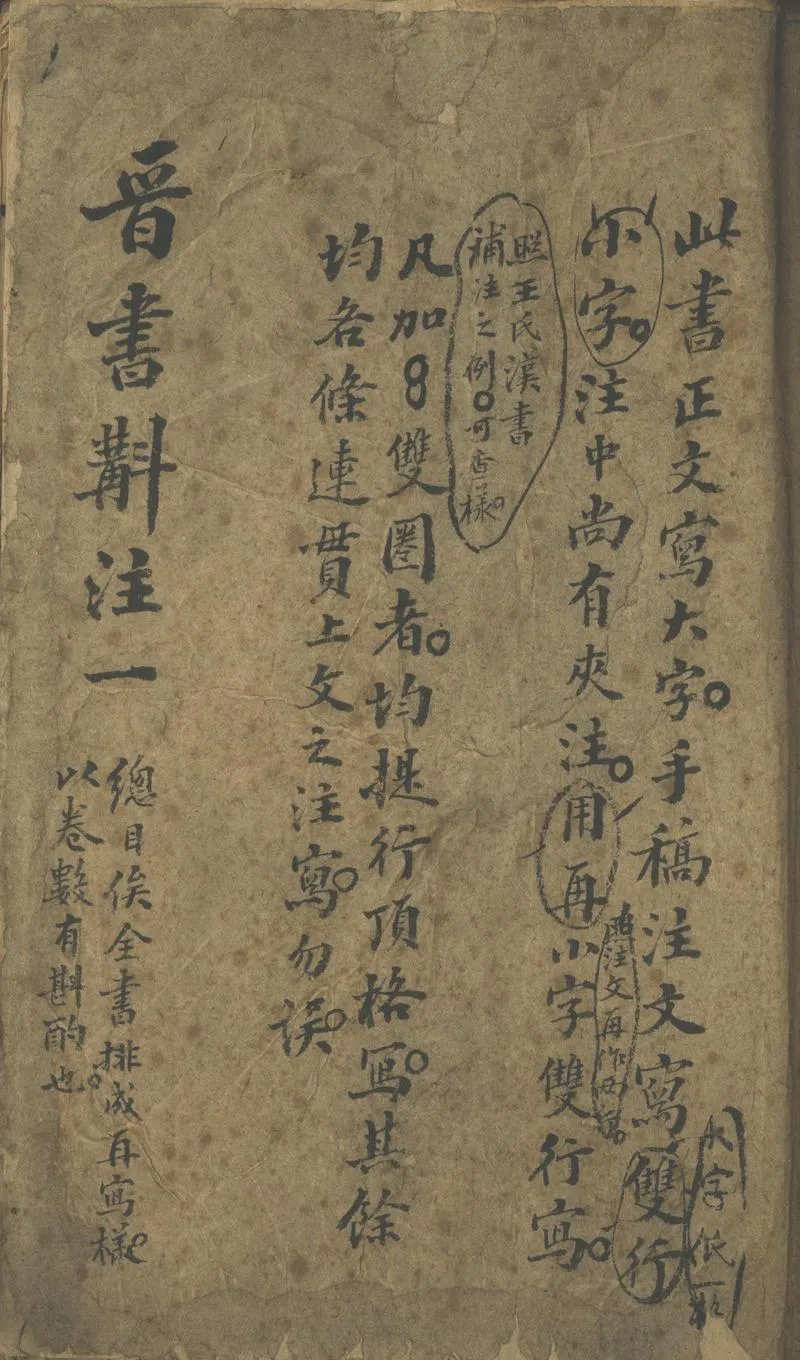 此書正文寫大字。手稿注文寫雙行
大字低一格
小字。注中尚有夾注。用再小字雙行寫。
照注文再作兩行。
照王氏漢書
補注之例。可查樣。
凡加8雙圈者。均提行頂格寫。其餘
均各條連貫上文之注寫。勿誤。
晉書斠注一
總目俟全書排成再寫樣。
以卷數有斟酌也。